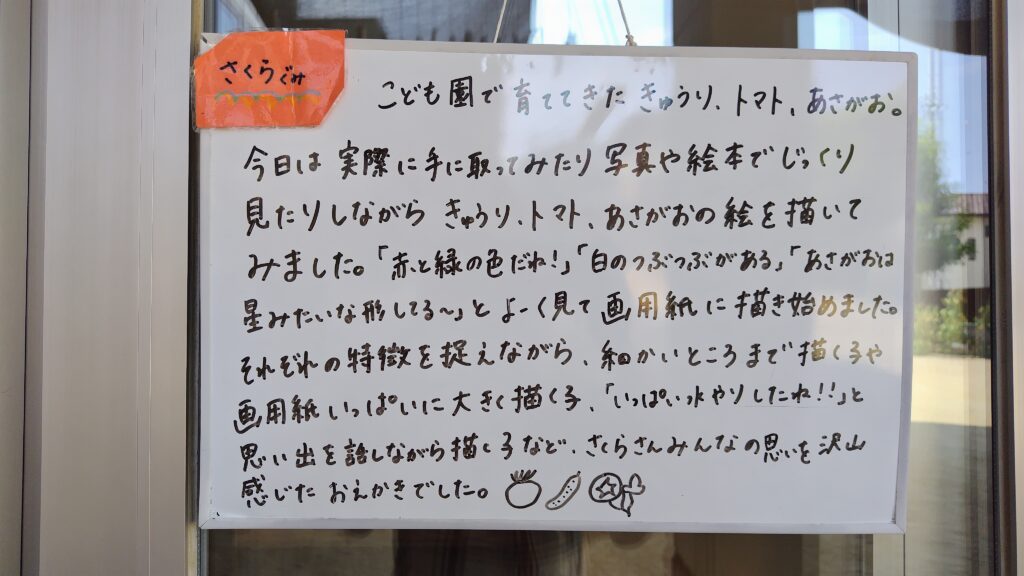 さくらぐみ
こども園で育ててきたきゅうり、トマト、あさがお。
今日は実際に手に取ってみたり写真や絵本でじっくり
見たりしながらきゅうり、トマト、あさがおの絵を描いて
みました。「赤と緑の色だね!」「白のつぶつぶがある」「あさがおは
星みたいな形してる〜」とよーく見て画用紙に描き始めました。
それぞれの特徴を捉えながら、細かいところまで描く子や
画用紙いっぱいに大きく描く子、「いっぱい水やりしたね!!」と
思い出を話しながら描く子など、さくらさんみんなの思いを沢山
感じたおえかきでした。